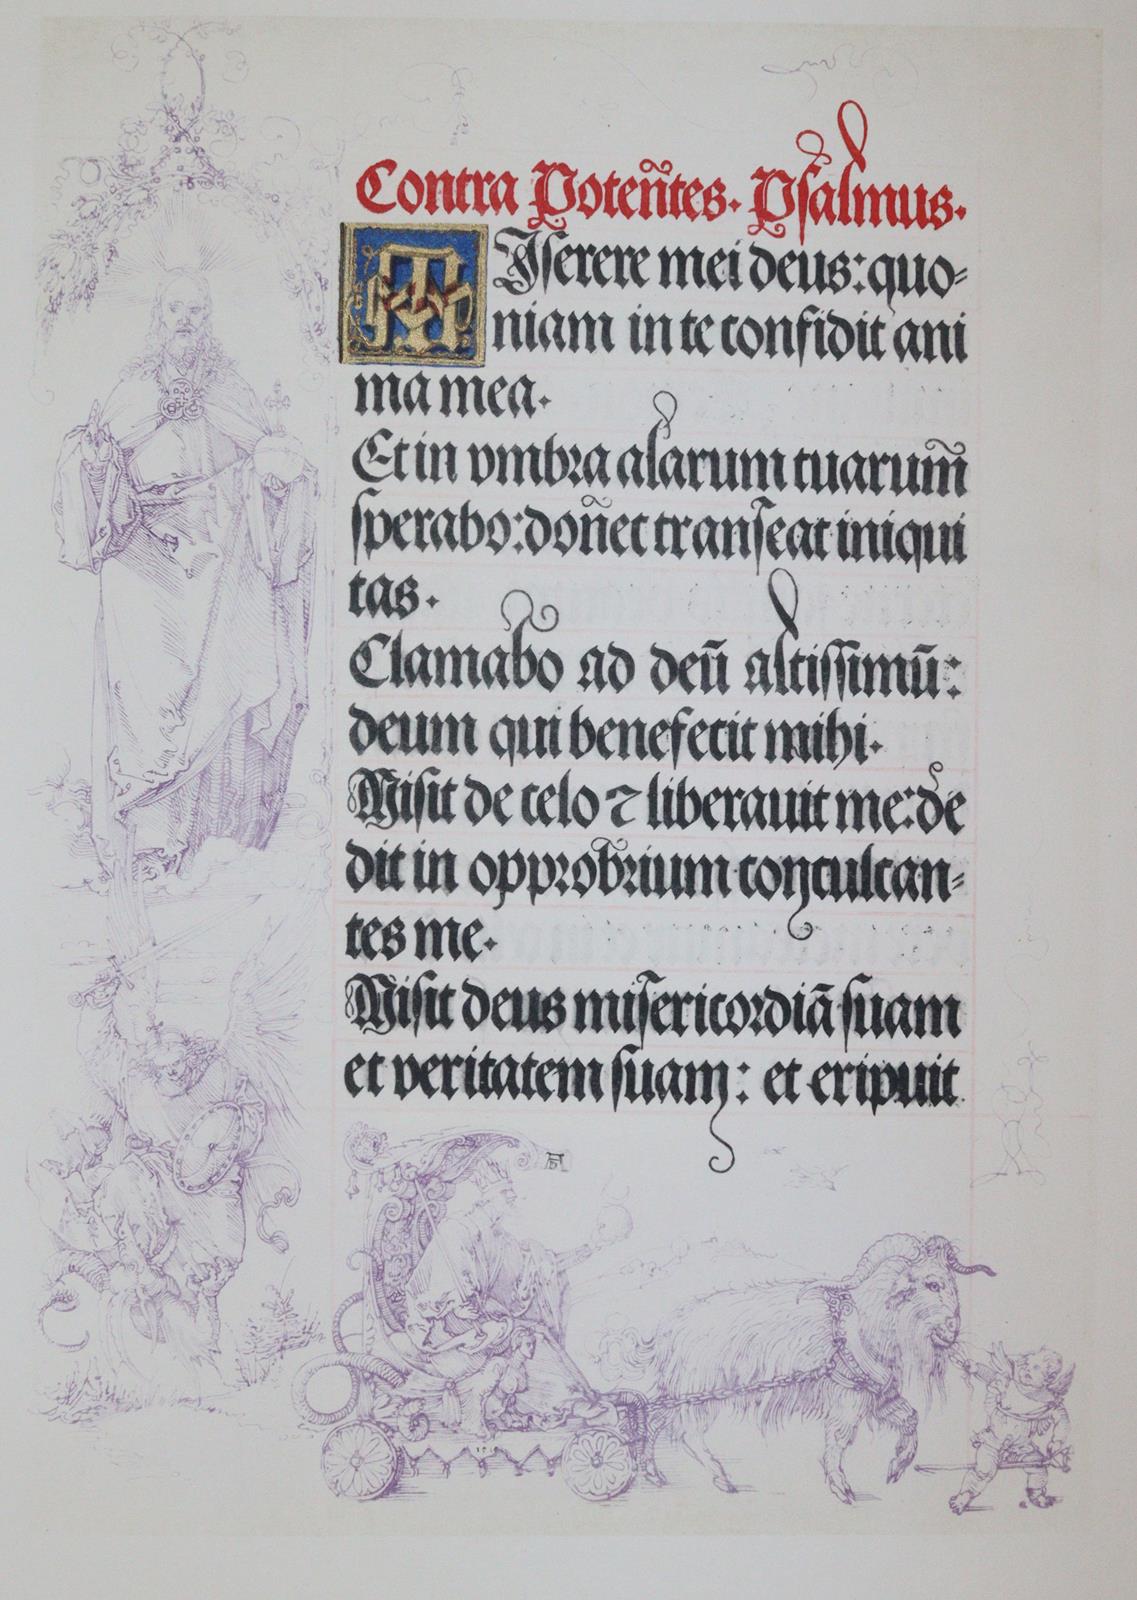 Contra Poten̄tes. Psalmus.
MIserere mei deus: quo-
niam in te confidit ani
ma mea.
Et in vmbra alarum tuarum̄
sperabo: don̄ec transeat iniqui
tas.
Clamabo ad deū altissimū:
deum qui benefecit mihi.
Misit de celo ⁊ liberauit me: de
dit in opprobrium conculcan-
tes me.
Misit deus misericordiā suam
et veritatem suam: et eripuit
AD